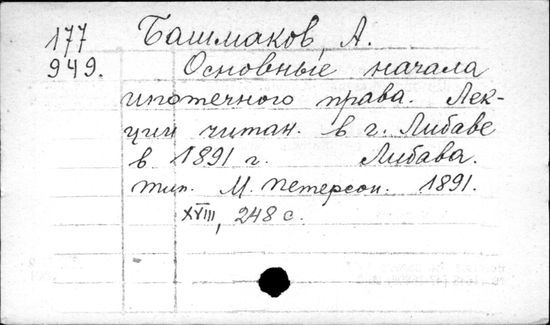 177 Башмаков, А.
949. Основные начала
ипотечного права. Лек-
ции читан. в г. Либаве
в 1891 г. Либава.
тип. М. Петерсон. 1891.
XVIII, 248 с.